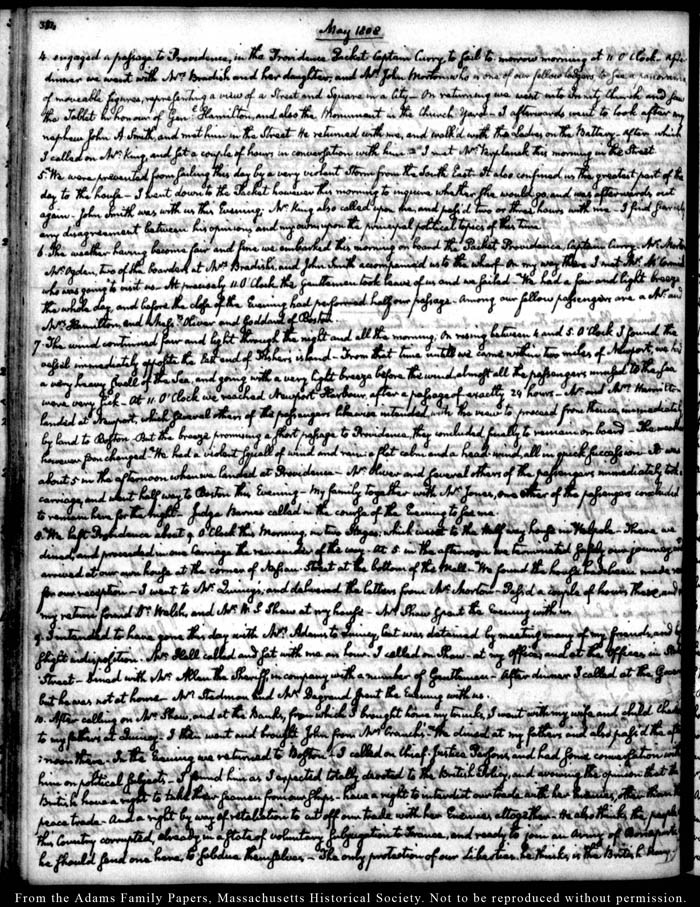 324
May 1808
4. engaged a passage to Providence, in the Providence Packet Captain Curry, to sail to morrow morning at 11 O'Clock. After
dinner we went with Mrs. Bradish and her daughters, and Mr. John Morton who is one of our fellow lodgers to see a
of moveable figures, representing a view of a Street and Square in a City — On returning we went into Trinity Church and saw
the Tablet in honour of Genl. Hamilton, and also the Monument in the Church Yard — I afterwards went to look after my
nephew John A. Smith, and met him in the Street. He returned with me, and walk'd with the Ladies on the Battery — after which
I called on Mr. King, and sat a couple of hours in conversation with him — I met Mr. Verplanck this morning in the Street.
5. We were prevented from sailing this day by a very violent Storm from the South East. It also confined us the greatest part of the
day to the house — I went down to the Packet however this morning to inquire whether she would go, and was afterwards out
again. John Smith was with us this Evening; Mr. King also called upon me, and pass'd two or three hours with me — I find scarcely
any disagreement between his opinions and my own upon the principal political topics of this time.
6. The weather having become fair and fine we embarked this morning on board the Packet Providence, Captain Curry — Mr. Morton
Mr. Ogden, two of the boarders at Mrs. Bradish's, and John Smith accompanied us to the wharf — On my way there I met Mr.
who was going to visit us — At precisely 11 O'Clock the Gentlemen took leave of us and we sailed — We had a fair and light breeze
the whole day, and before the close of the Evening had performed half our passage — Among our fellow passengers are a Mr. and
Mrs. Hamilton, and Messrs. Oliver and Goddard of Boston.
7. The wind continued fair and light through the night and all the morning. On rising between 4 and 5 O'Clock I found the
vessel immediately opposite the East end of Fishers island — From that time untill we came within two miles of Newport, we had
a very heavy swell of the Sea, and going with a very light breeze before the wind almost all the passengers unused to the sea
were very sick — At 11 O'Clock we reached Newport Harbour, after a passage of exactly 24 hours — Mr. and Mrs. Hamilton
landed at Newport, which several others of the passengers likewise intended, with the view to proceed from thence, immediately
by land to Boston — But the breeze promising a short passage to Providence, they concluded finally to remain on board — The weather
however soon changed. We had a violent squall of wind and rain; a flat calm and a head-wind, all in quick succession. It was
about 5 in the afternoon when we landed at Providence — Mr. Oliver and several others of the passengers immediately took
carriage, and went half way to Boston this Evening — My family together with Mr. Jones, one other of the passengers concluded
to remain here for the night. Judge Barnes called in the course of the Evening to see me.
8. We left Providence about 9 O'Clock this Morning, in two Stages; which went to the Half way house in Walpole — There we
dined, and proceeded in one Carriage the remainder of the way — At 5 in the afternoon we terminated safely our journey and
arrived at our own house at the corner of Nassau-Street at the bottom of the Mall — We found the house had been made ready
for our reception — I went to Mr. Quincy's, and delivered the letters from Mr. Morton — Pass'd a couple of hours there, and on
my return found Dr. Welsh, and Mr. W. S. Shaw at my house — Mr. Shaw spent the Evening with us.
9. I intended to have gone this day with Mrs. Adams to Quincy, but was detained by meeting many of my friends, and by
slight indisposition. Mr. Hall called and sat with me an hour. I called on Shaw — at my office, and at the Offices in State
Street — Dined with Mr. Allen the Sheriff, in company with a number of Gentlemen — After dinner I called at the Governor's
but he was not at home. Mr. Stedman and Mr. Degrand spent the Evening with us.
10. After calling on Mr. Shaw, and at the Banks, from which I brought home my trunks, I went with my wife and child Charles
to my father's at Quincy. I then went and brought John from Mr. Cranch's. We dined at my father's and also pass'd the after
:noon there. In the Evening we returned to Boston — I called on Chief-Justice Parsons, and had some conversation with
him on political subjects — I found him as I expected totally devoted to the British Policy, and avowing the opinion that the
British have a right to take their Seamen from our Ships — have a right to interdict our trade with her Enemies, other than the
peace trade — And a right by way of retaliation to cut off our trade with her Enemies altogether. He also thinks, the people of
this Country corrupted, already in a State of voluntary subjugation to France, and ready to join an Army of Bonaparte, if
he should send one here, to subdue themselves — The only protection of our Liberties he thinks, is the British Navy.
From the Adams Family Papers, Massachusetts Historical Society. Not to be reproduced without permission.